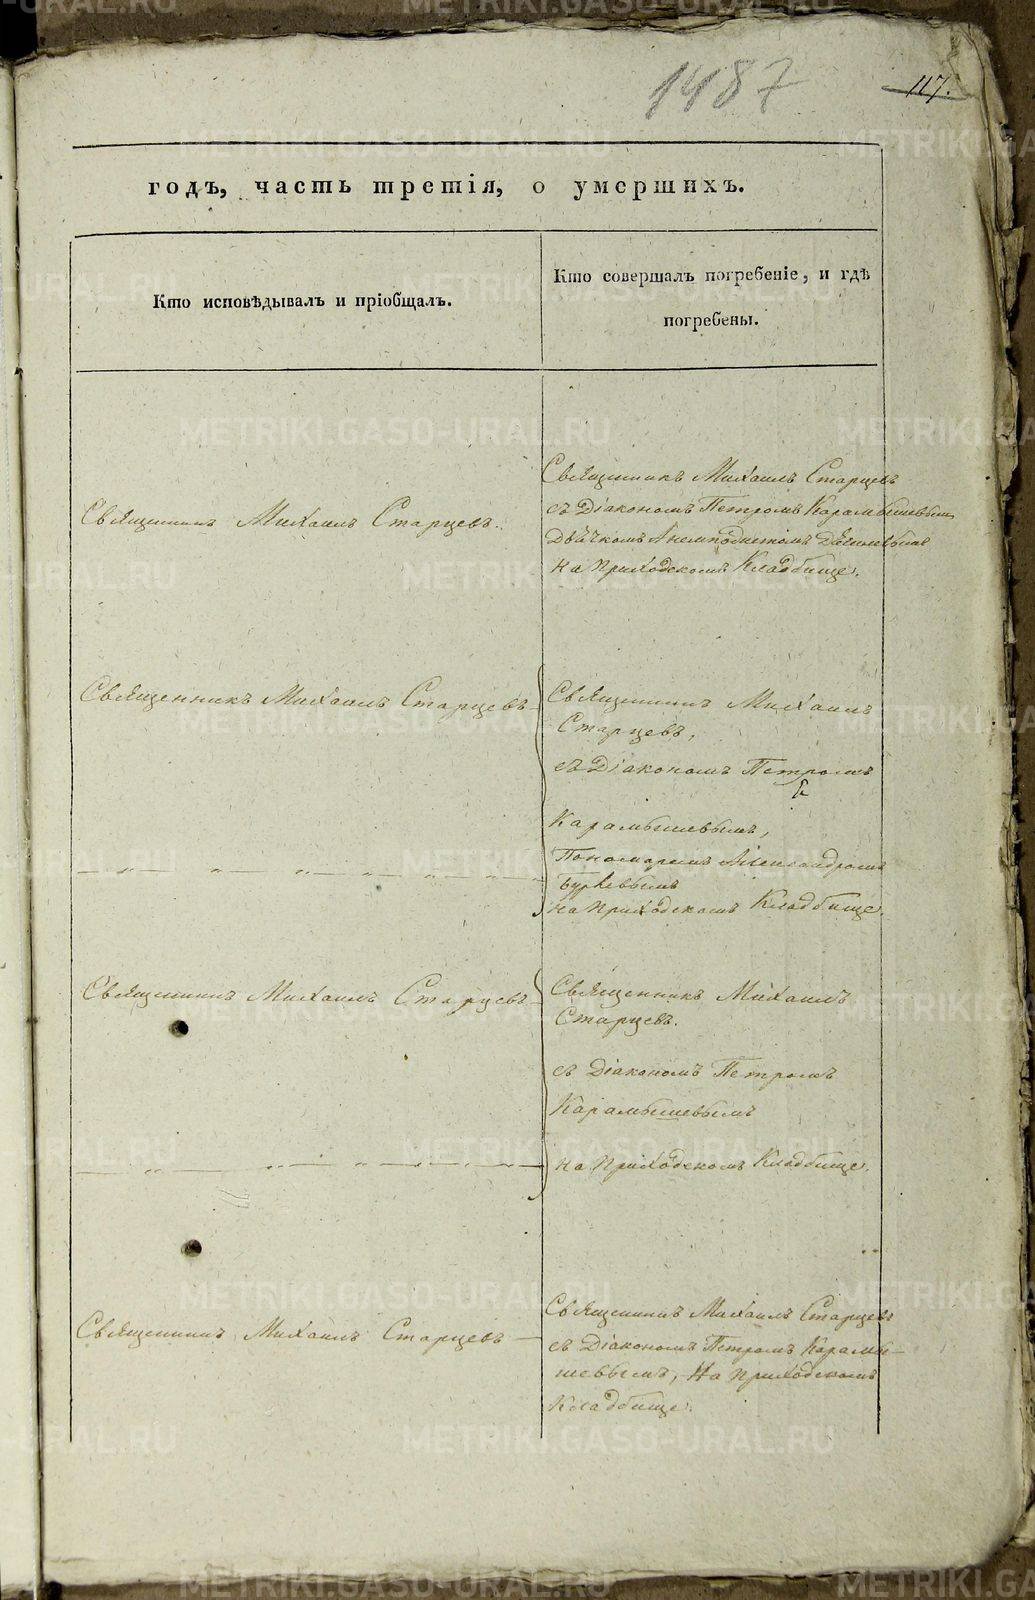 1487
117.
годъ, часть третія, о умершихъ.
Кто исповѣдывалъ и пріобщалъ.
Кто совершалъ погребеніе, и гдѣ
погребены.
Священникъ Михаилъ Старцевъ.
Священникъ Михаилъ Старцевъ
съ Діакономъ Петромъ Карамышевым
Дьячкомъ
на приходскомъ Кладбище.
Священникъ Михаилъ Старцевъ
Священникъ Михаилъ
Старцевъ,
съ Діакономъ Петромъ
Карамышевымъ,
Пономаремъ Александромъ
на приходскомъ Кладбище.
Священникъ Михаилъ Старцевъ
Священникъ Михаилъ
Старцевъ.
съ Діакономъ Петромъ
Карамышевымъ
на приходскомъ Кладбище.
Священникъ Михаилъ Старцевъ
Священникъ Михаилъ Старцевъ
съ Діакономъ Петромъ Карамы-
шевымъ, на приходскомъ
Кладбище.
METRIKI.GASO-URAL.RU